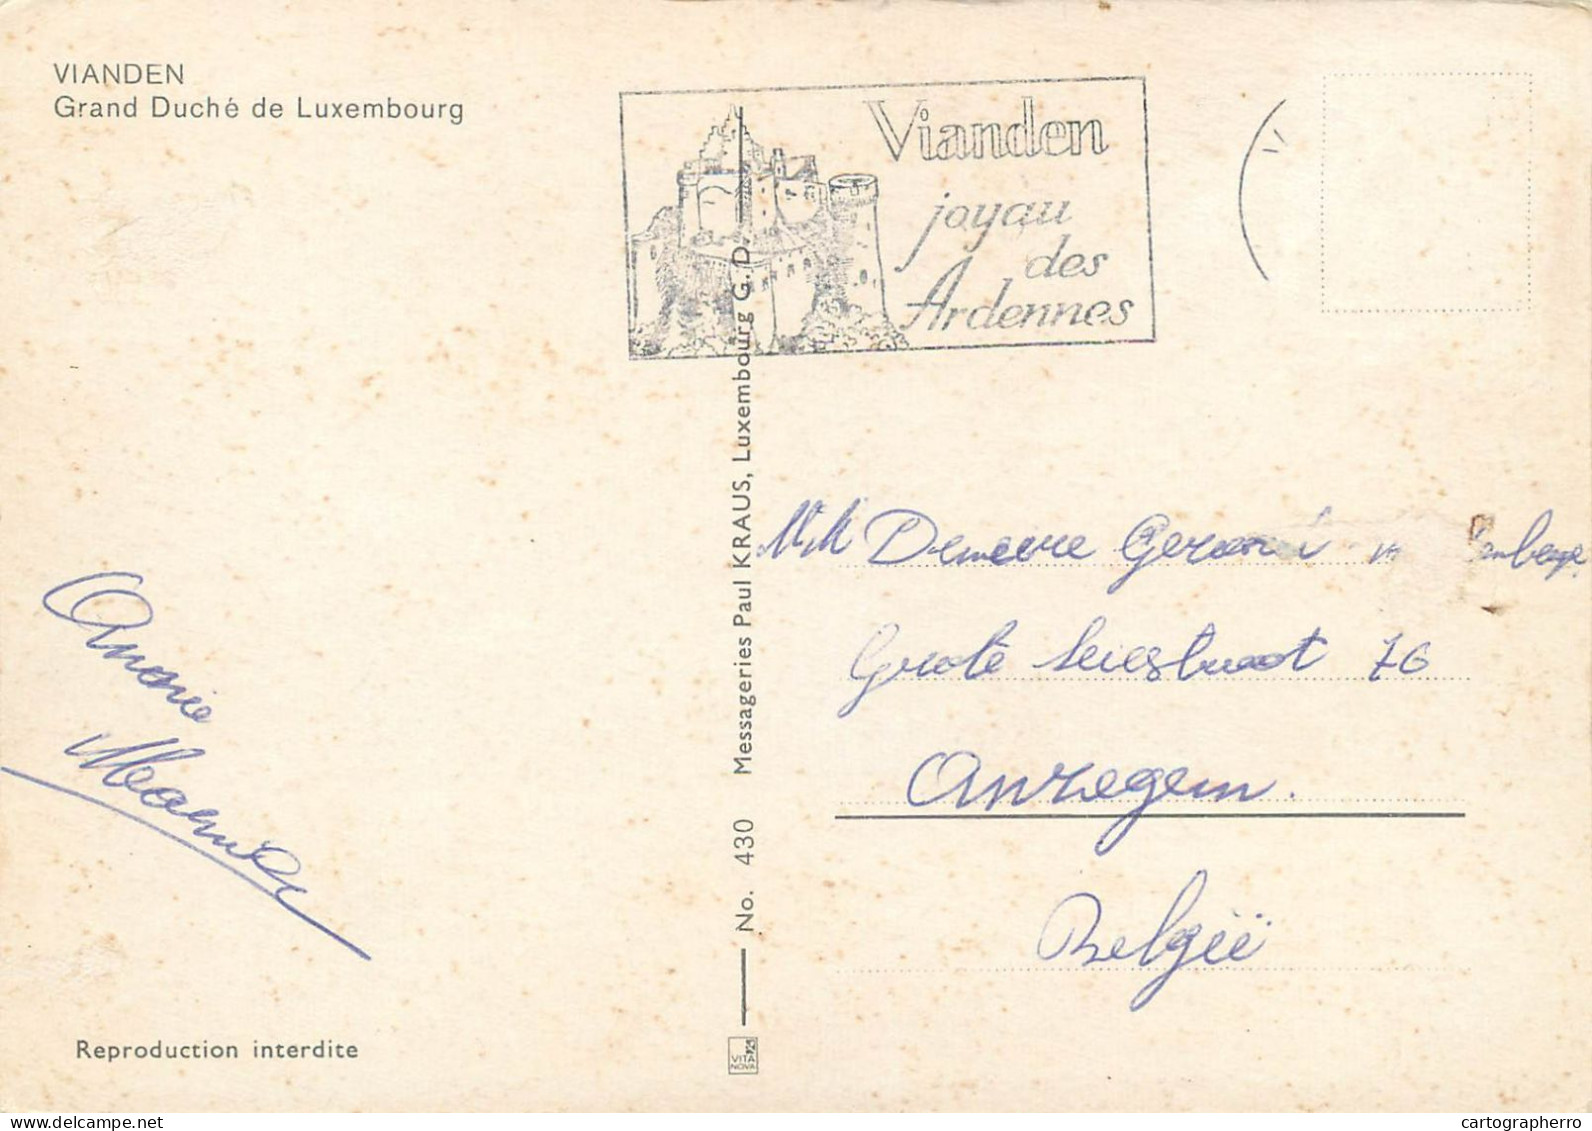 VIANDEN
Grand Duché de Luxembourg
Vianden
joyau
des
Ardennes
No. 430 Messageries Paul KRAUS, Luxembourg G. D.
Demeere Gerard
Grote 76
Anzegem.
België
Reproduction interdite
VITA
NOVA
delcampe.net
cartographerro